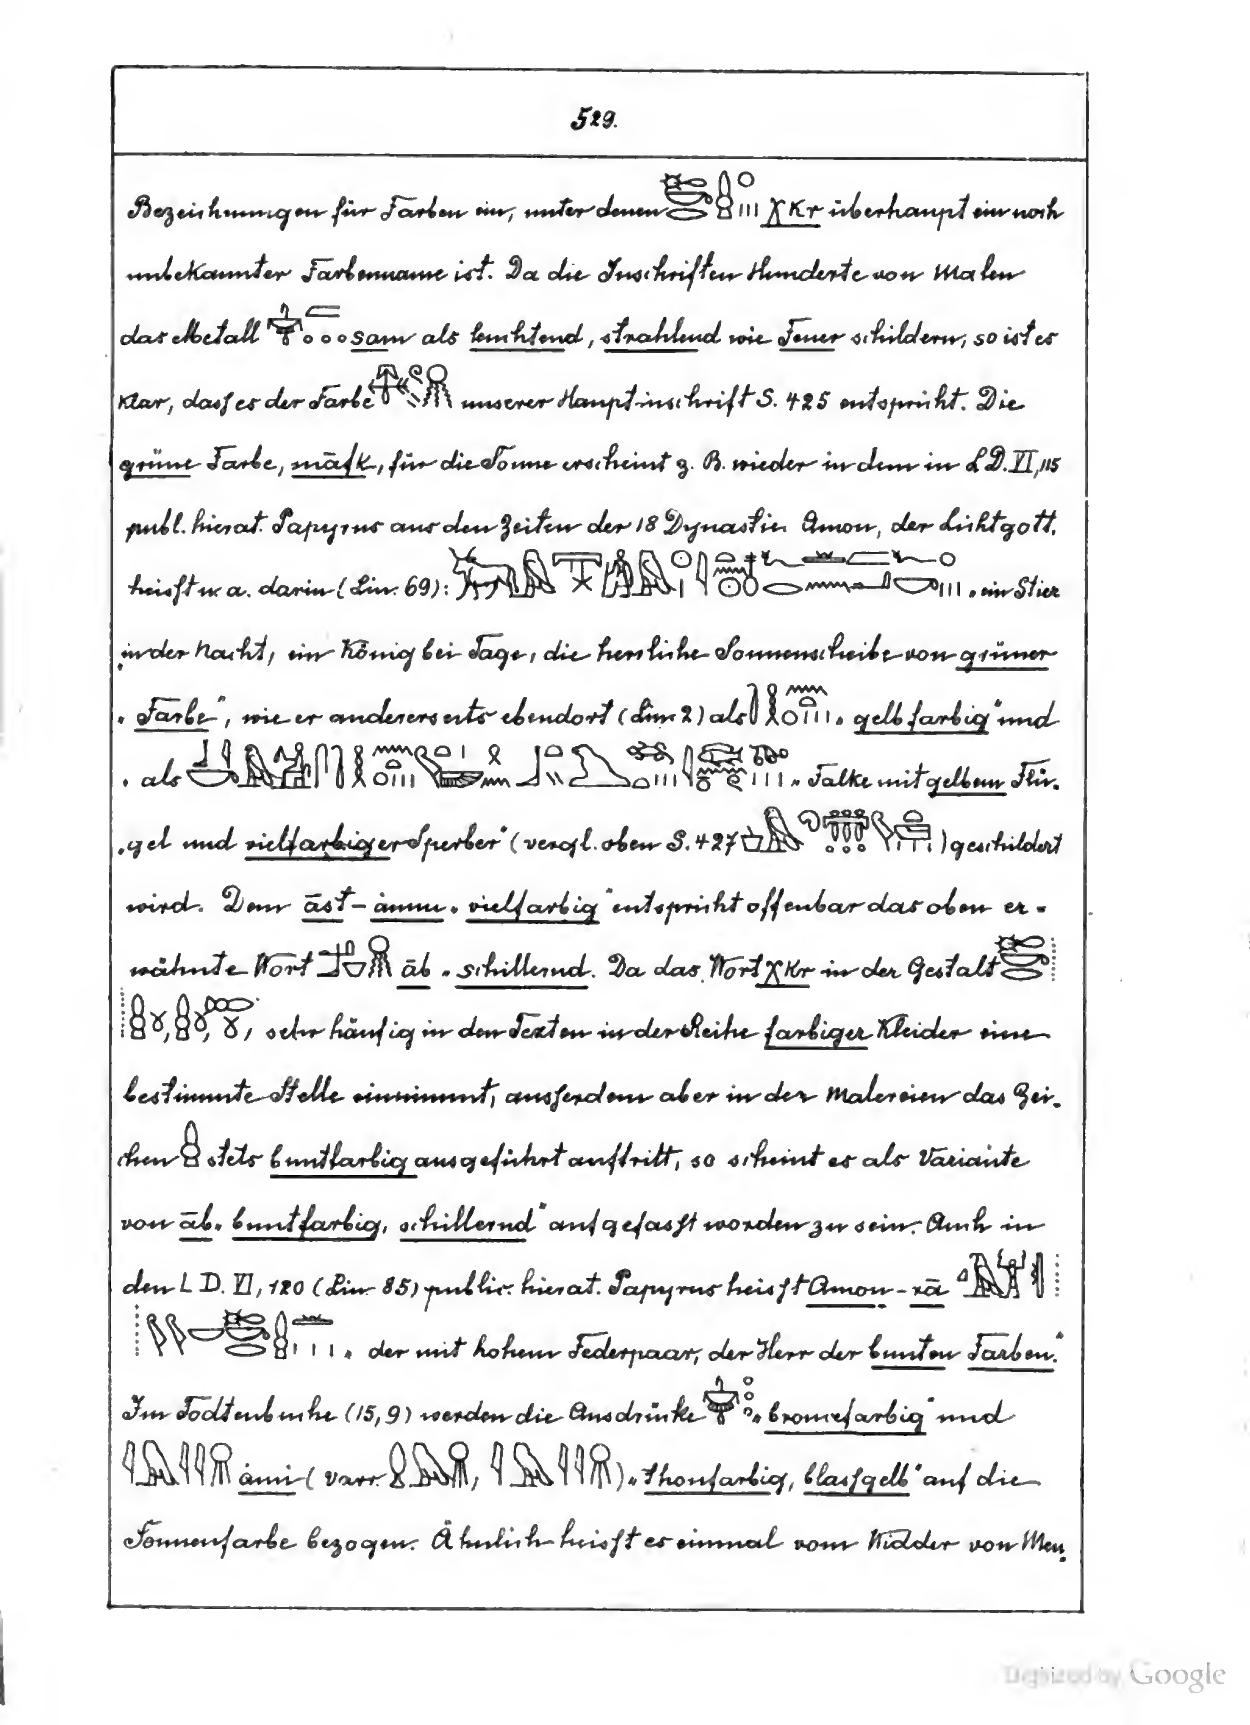 529.
Bezeichnungen für Farben ein, unter denen χKr überhaupt ein noch
unbekannter Farbenname ist. Da die Inschriften Hunderte von Malen
das Metall sam als leuchtend, strahlend wie Feuer schildern, so ist es
klar, dass es der Farbe unserer Hauptinschrift S. 425 entspricht. Die
grüne Farbe, māfk, für die Sonne erscheint z. B. wieder in dem in LD. VI, 115
publ. hierat. Papyrus aus den Zeiten der 18 Dynastie. Amon, der Lichtgott,
heisst u. a. darin (Lin. 69): „ein Stier
in der Nacht, ein König bei Tage, die herrliche Sonnenscheibe von grüner
„Farbe“, wie er andererseits ebendort (Lin. 2) als „gelbfarbig“ und
„als „Falke mit gelbem Flü-
„gel und vielfarbiger Sperber“ (vergl. oben S. 427 ) geschildert
wird. Dem āst-ànnu „vielfarbig“ entspricht offenbar das oben er-
wähnte Wort āb „schillernd. Da das Wort χKr in der Gestalt
, , , sehr häufig in den Texten in der Reihe farbiger Kleider eine
bestimmte Stelle einnimmt, ausserdem aber in den Malereien das Zei-
chen stets buntfarbig ausgeführt auftritt, so scheint es als Variante
von āb „buntfarbig, schillernd“ aufgefasst worden zu sein. Auch in
den L D. VI, 120 (Lin. 85) public. hierat. Papyrus heisst Amon-rā
„der mit hohem Federpaar, der Herr der bunten Farben.“
Im Todtenbuche (15,9) werden die Ausdrücke „broncefarbig“ und
àmi (varr. , ) „thonfarbig, blassgelb“ auf die
Sonnenfarbe bezogen. Ähnlich heisst es einmal vom Widder von Men-
Digitized by Google